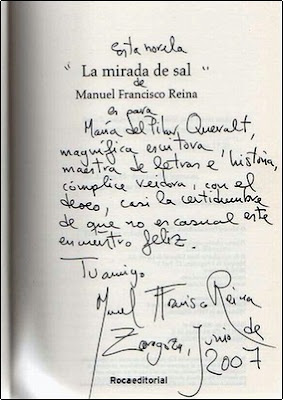 Esta novela
"La mirada de sal"
de
Manuel Francisco Reina
es para
María del Pilar Queralt,
magnífica escritora
maestra de letras e historia,
cómplice verdora, con el
deseo, casi la certidumbre
de que no es casual este
encuentro feliz.
Tu amigo
Manuel Francisco Reina
Zaragoza, Junio de
2007
Rocaeditorial